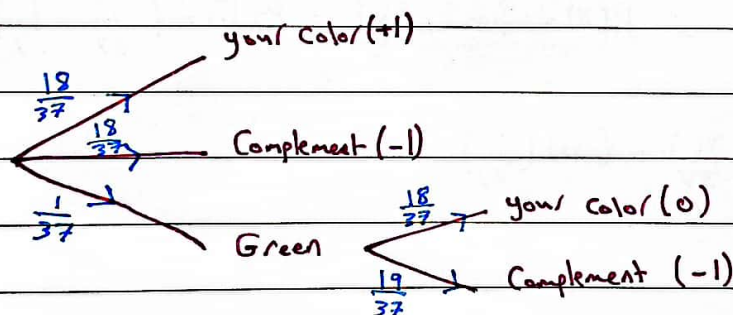 your color (+1)
18/37
18/37
Complement (-1)
1/37
Green
18/37
your color (0)
19/37
Complement (-1)